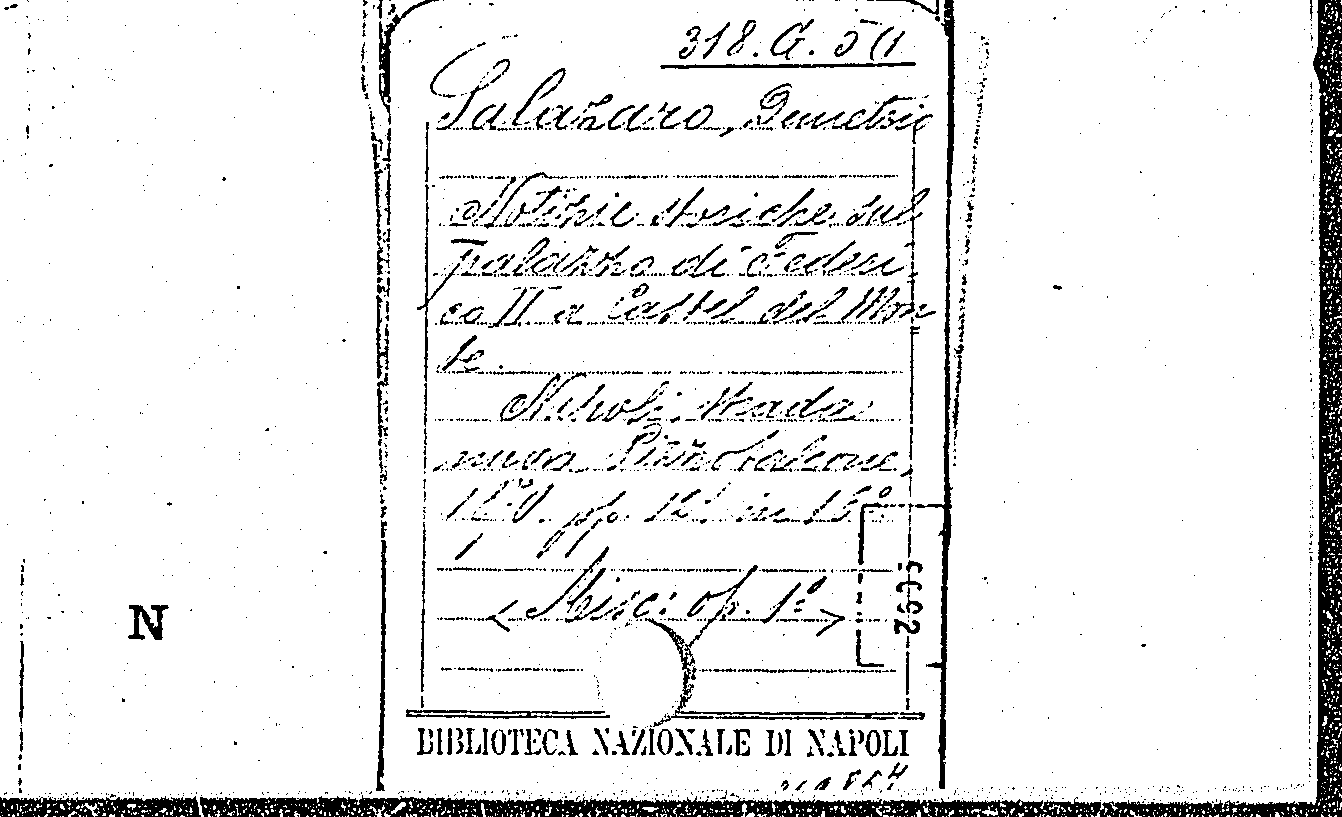 318. G. 5 (1
Salazaro, Demetrio
Notizie storiche sul
palazzo di Federi
co II a Castel del Mon
te.
Napoli, strada
nuova Pizzofalcone,
pp. 12. in 16º
< Misc: op. 1º >
N
BIBLIOTECA NAZIONALE DI NAPOLI